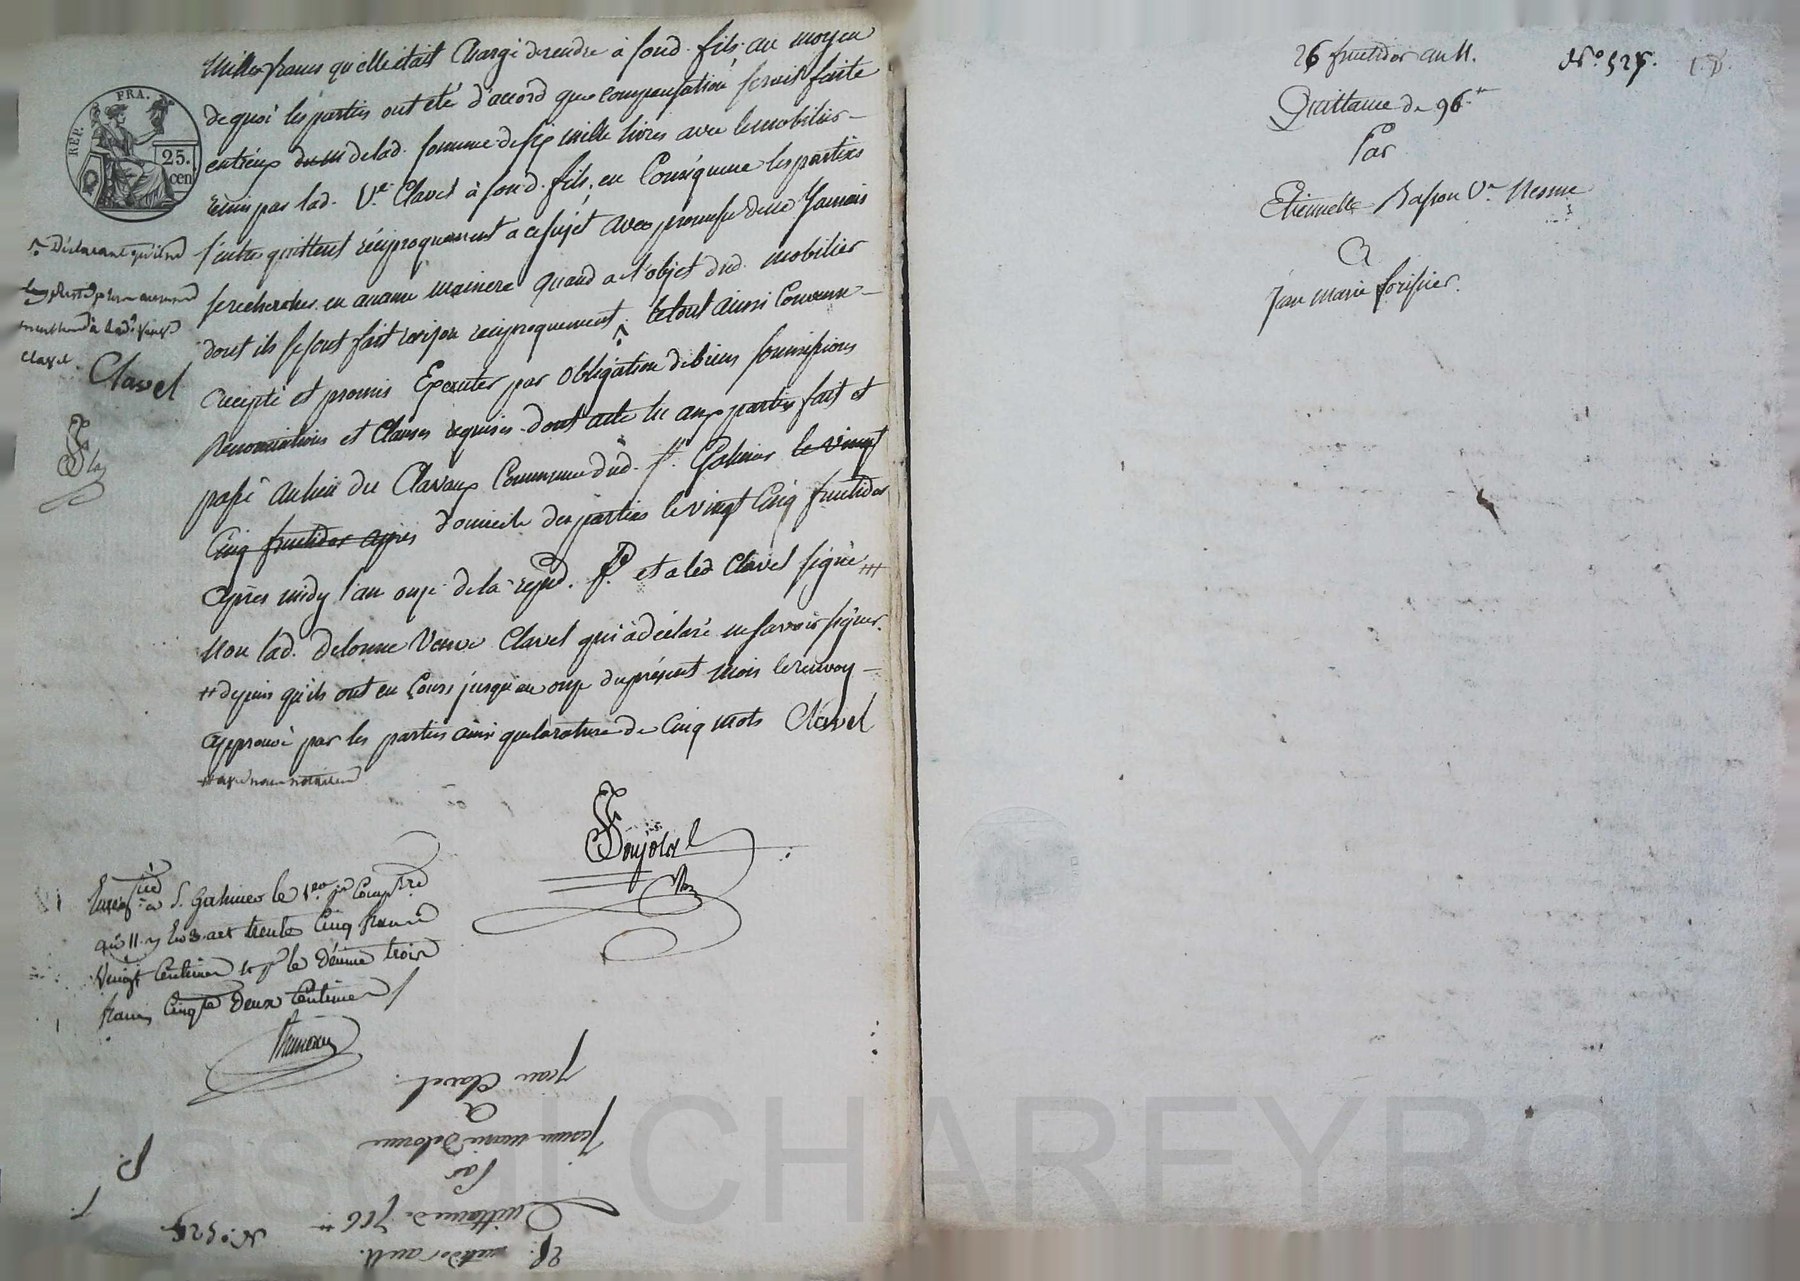 mille francs qu'elle était Chargé de rendre à sond. fils, au moyen
de quoi les parties ont eté d'accord que compensation seroit faite
entr'eux de lad. somme de six mille livres avec le mobilier
remis par lad. Ve. Clavel à sond. fils, en Conséquence les parties
s'entre quittent réciproquement a ce sujet avec promesse de ne Jamais
se rechercher en aucune maniere quand a l'objet dud. mobilier
dont ils se sont fait raison reciproquement. le tout ainsi Convenu
accepté et promis Executer par obligation de biens soumissions
Renonciations et Clauses requises dont acte lu aux parties fait et
passé au lieu des Clavaux Commune dud. St. Galmier le vingt
Cinq fructidor après domicile des parties le vingt Cinq fructidor
après midy l'an onze de la repd. fse et a led Clavel signé
Non lad. delorme Veuve Clavel qui a déclaré ne savoir signer.
depuis qu'ils ont eu Cours jusqu'au onze du présent mois le renvoy
approuvé par les parties ainsi que la rature de Cinq mots Clavel
REP. FRA.
25.
cen
Déclarant qu'il
Clavel
Clavel
Enregtré à St. Galmier le 1er. jr Complre
an 11. trente Cinq francs
vingt Centimes et pr le dixième trois
francs Cinqte deux Centimes
25. fructidor an 11.
N° 524
Quittance de 716
Par
Jeanne marie Delorme
A
Jean Clavel.
26 fructidor an 11.
N° 525.
Quittance de 96
Par
Etiennette Basson Ve Nesme
A
Jean Marie forissier.
Pascal CHAREYRON